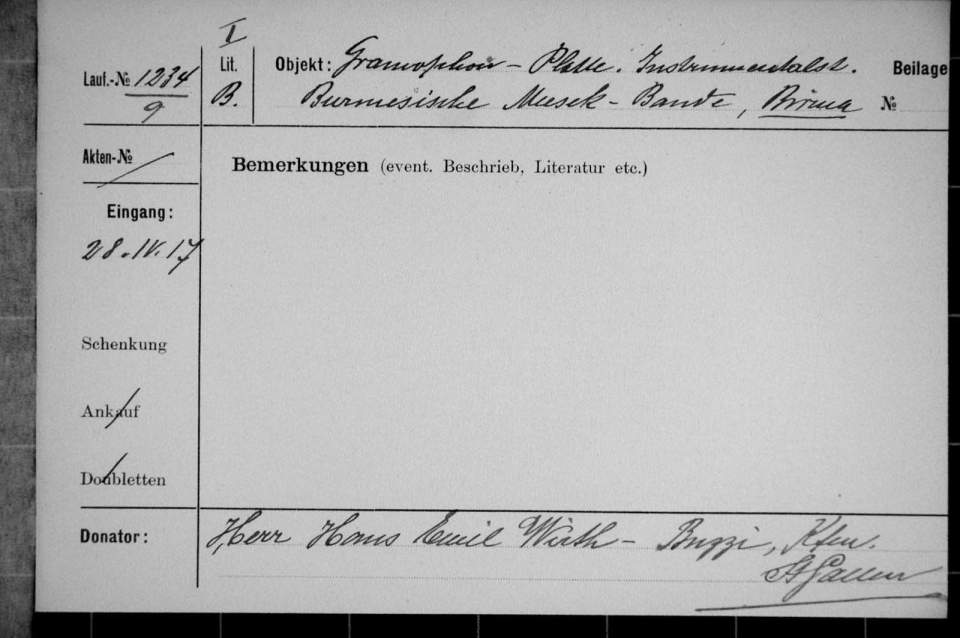 I
Lauf.-№ 1234
9
Lit.
B.
Objekt: Gramophon - Platte. Instrumentalst.
Burmesische Musik - Bande, Birma
Beilage
№
Akten-№
Bemerkungen (event. Beschrieb, Literatur etc.)
Eingang:
28.IV.17
Schenkung
Ankauf
Doubletten
Donator: Herr Hans Emil Wirth - Kfm.
St Gallen